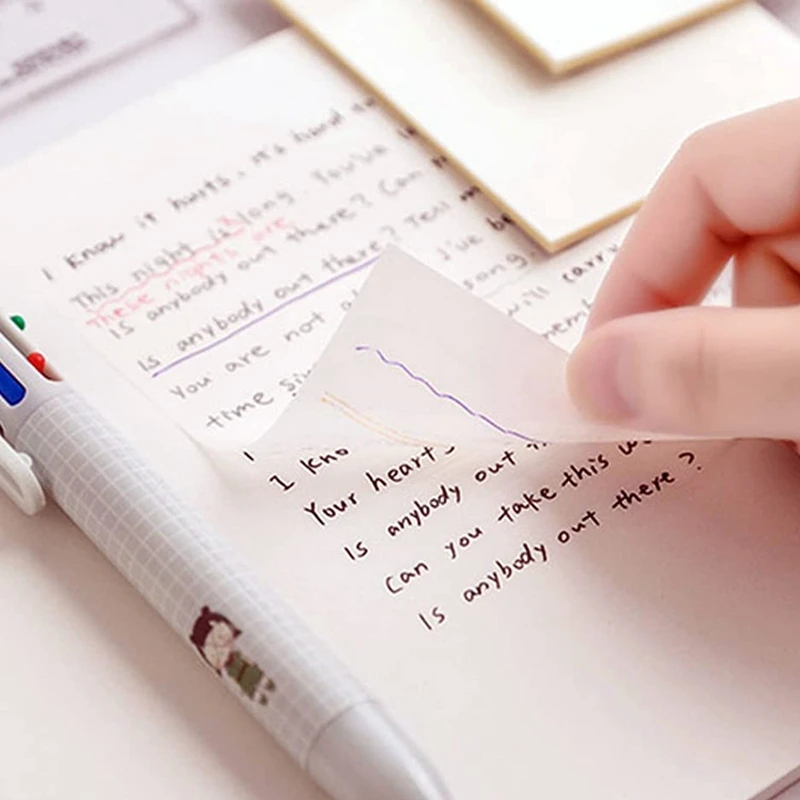 I know it hurts. It's hard to
This night is long. You've
These nights are
Is anybody out there? Can
Is anybody out there? Tell
You are not a I've be
time sin song. will carry
I kno
Your heart
Is anybody out
Can you take this
Is anybody out there?